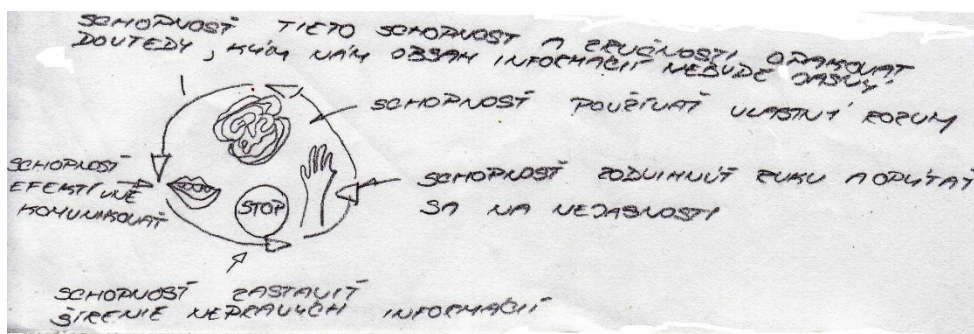 SCHOPNOSŤ TIETO SCHOPNOSTI A ZRUČNOSTI OPAKOVAŤ
DOVTEDY, KÝM NÁM OBSAH INFORMÁCIÍ NEBUDE JASNÝ!
SCHOPNOSŤ POUŽÍVAŤ VLASTNÝ ROZUM
SCHOPNOSŤ
EFEKTÍVNE
KOMUNIKOVAŤ
STOP
SCHOPNOSŤ ZODVIHNÚŤ RUKU A OPÝTAŤ
SA NA NEJASNOSTI
SCHOPNOSŤ ZASTAVIŤ
ŠÍRENIE NEPRAVÝCH INFORMÁCIÍ